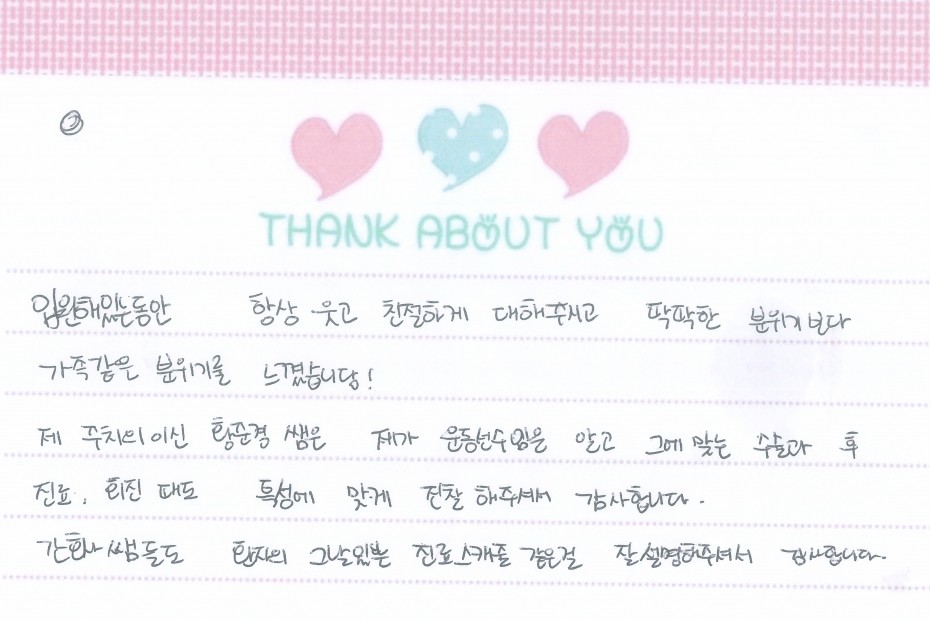 THANK ABOUT YOU
입원해있는동안 항상 웃고 친절하게 대해주시고 딱딱한 분위기 보다
가족같은 분위기를 느꼈습니당!
제 주치의이신 황준경 쌤은 제가 운동선수임을 알고 그에 맞는 수술과 후
진료, 회진 때도 특성에 맞게 진찰 해주셔서 감사합니다.
간호사 쌤들도 환자의 그날있는 진료스케쥴 같은걸 잘설명해주셔서 감사합니다.